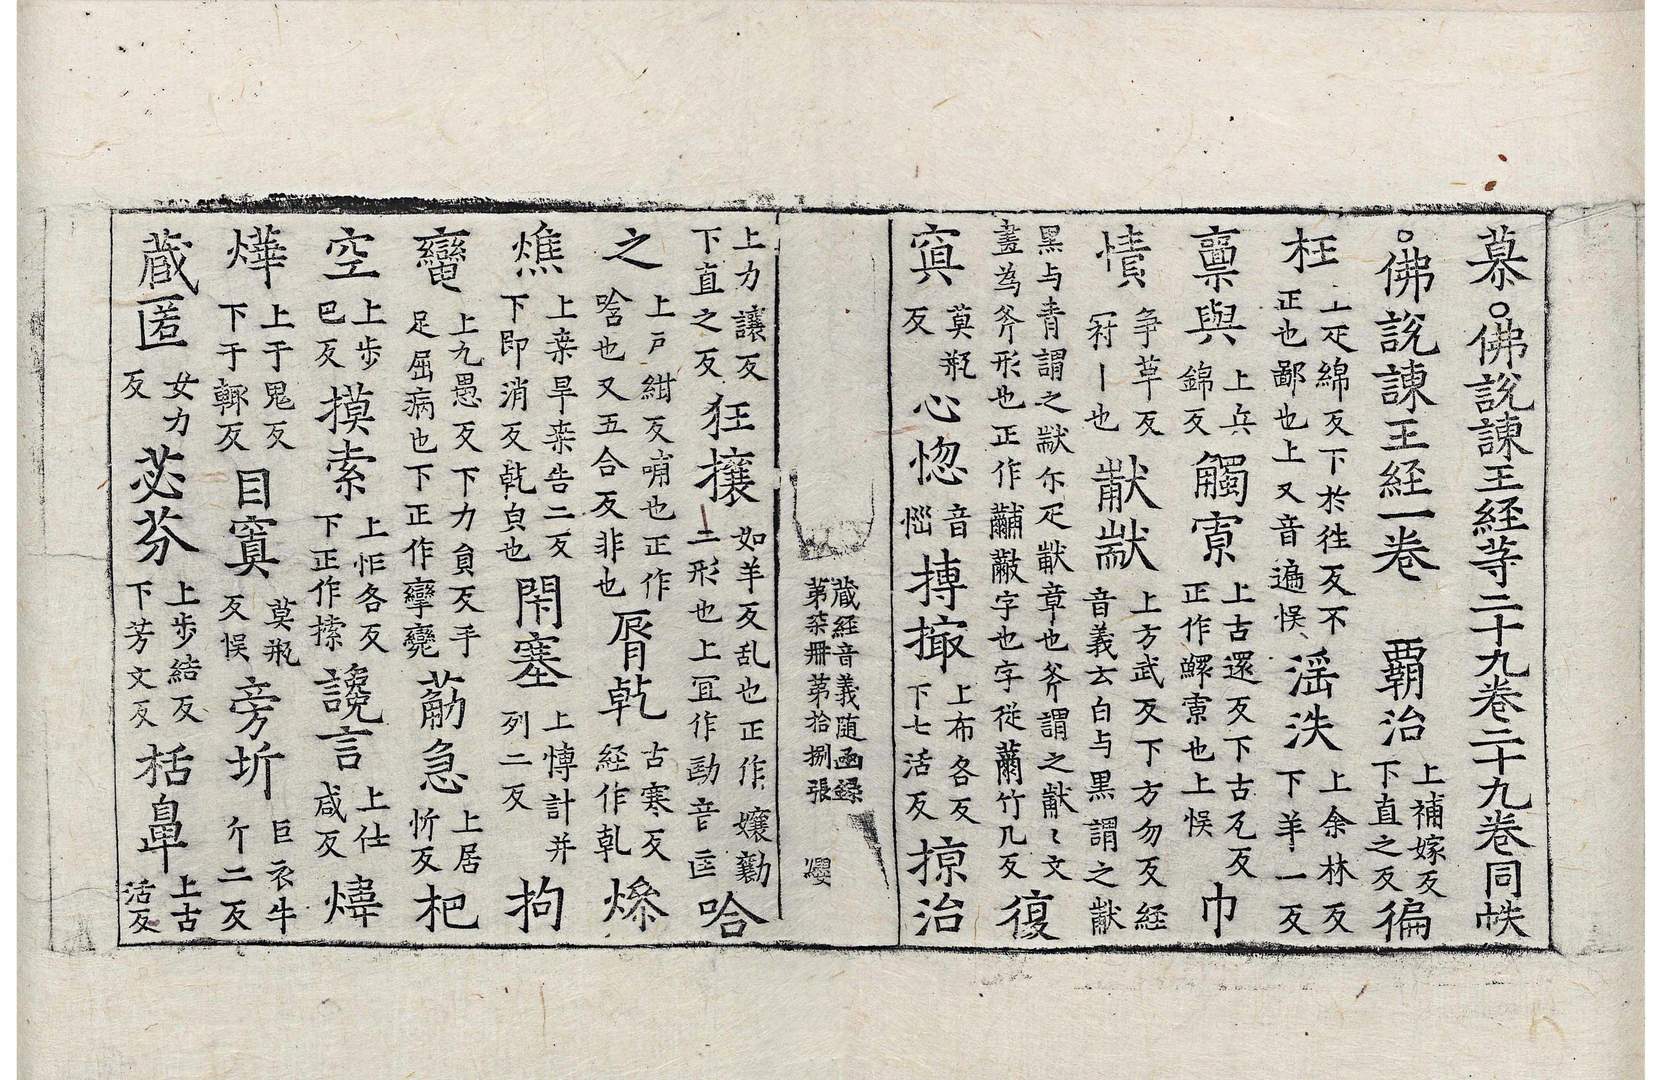 慕。佛說諫王経等二十九卷二十九卷同帙
。佛說諫王経一卷 覇治上補嫁反下直之反徧
枉上疋綿反下於徃反不正也鄙也上又音遍悮滛泆上余林反下羊一反
禀與上兵錦反觸𡩡上古還反下古瓦反正作鰥寡也上悮巾
幘爭草反冠丨也黻黻上方武反下方勿反経音義云白与黒謂之黼
黒与青謂之黻尒疋黻章也斧謂之黼〻文畫為斧形也正作黼黻字也字從黹竹几反復
寘莫瓶反心惚音惱摶撮上布各反下七活反掠治
藏経音義随函録
第柒冊第拾捌張 㹙
上力讓反下直之反狂攘如羊反乱也正作孃勷二形也上冝作劻音匡哈
之上戸紺反哺也正作唅也又五合反非也脣乾古寒反経作乹㷖
燋上桒旱桒告二反下即消反乾皃也閇塞上慱計并列二反拘
癵上九愚反下力負反手足屈病也下正作攣癴筋急上居忻反杷
空上步巴反摸索上忙各反下正作㩱讒言上仕咸反煒
燁上于鬼反下于輒反目寘莫瓶反悮旁圻巨衣牛斤二反
蔵匿女力反苾芬上步結反下芳文反栝鼻上古活反